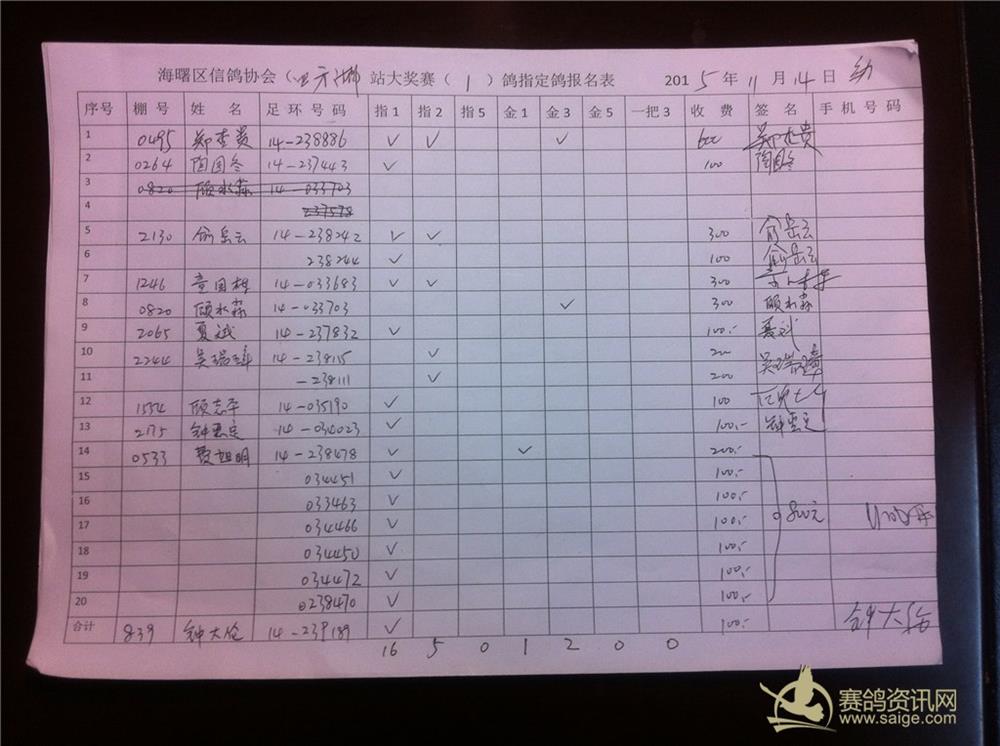 海曙区信鸽协会（ 站大奖赛（ 1 ）鸽指定鸽报名表 2015年11月14日 幼
序号 棚号 姓名 足环号码 指1 指2 指5 金1 金3 金5 一把3 收费 签名 手机号码
1 0495 郑杏贵 14-238886 ✓ ✓ ✓ 600
2 0264 陶国冬 14-237443 ✓ 100 陶国冬
3 0820 顾水森 14-033703
4 237578
5 2130 俞岳云 14-238242 ✓ ✓ 300 俞岳云
6 238244 ✓ 100 俞岳云
7 1246 童国根 14-033683 ✓ ✓ 300
8 0820 顾水森 14-033703 ✓ 300 顾水森
9 2065 夏斌 14-237832 ✓ 100.- 夏斌
10 2244 14-238115 ✓ 200
11 -238111 ✓ 200
12 1554 顾志华 14-035190 ✓ 100
13 2175 钟惠定 14-034023 ✓ 100.- 钟惠定
14 0533 费旭明 14-238478 ✓ ✓ 200.-
15 034451 ✓ 100.-
16 033463 ✓ 100.-
17 034466 ✓ 100.- 800元
18 034450 ✓ 100.-
19 034472 ✓ 100.-
20 0238470 ✓ 100.-
合计 839 钟大伦 14-239189 ✓ 100.- 钟大伦
16 5 0 1 2 0 0
赛鸽资讯网
www.saige.com